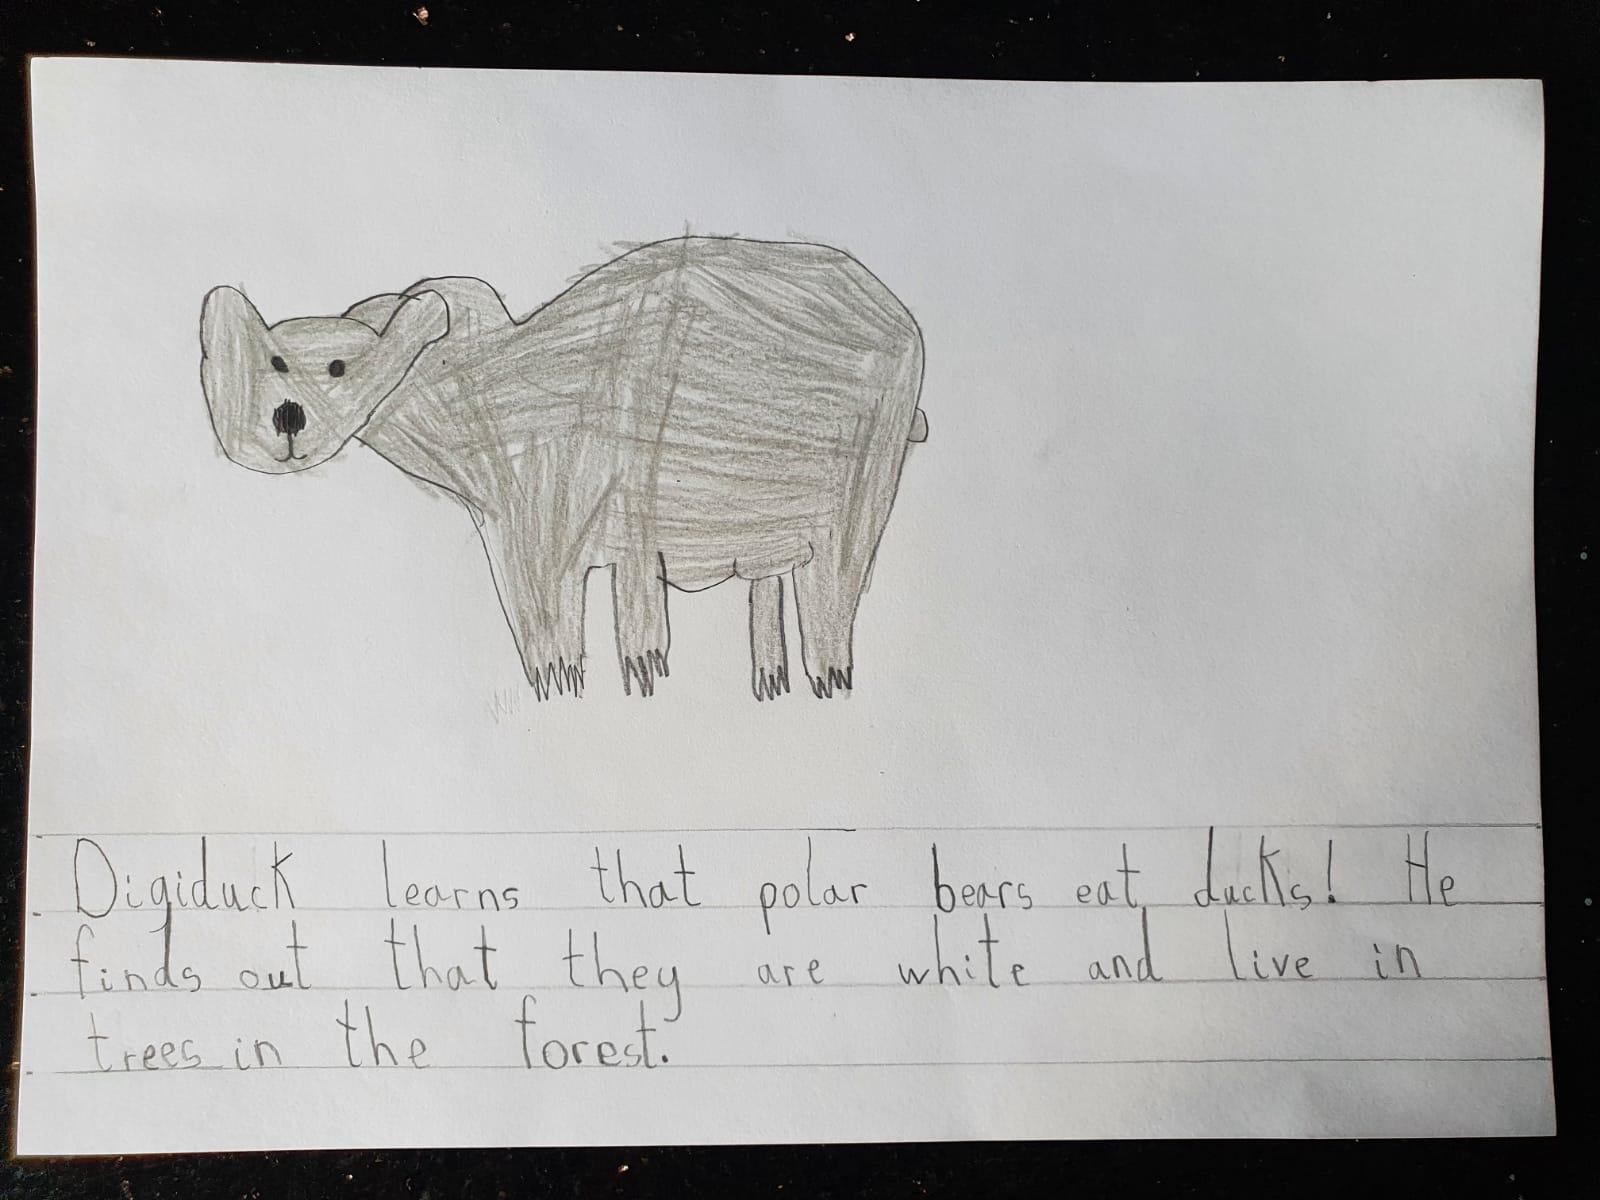 Digiduck learns that polar bears eat ducks! He
finds out that they are white and live in
trees in the forest.